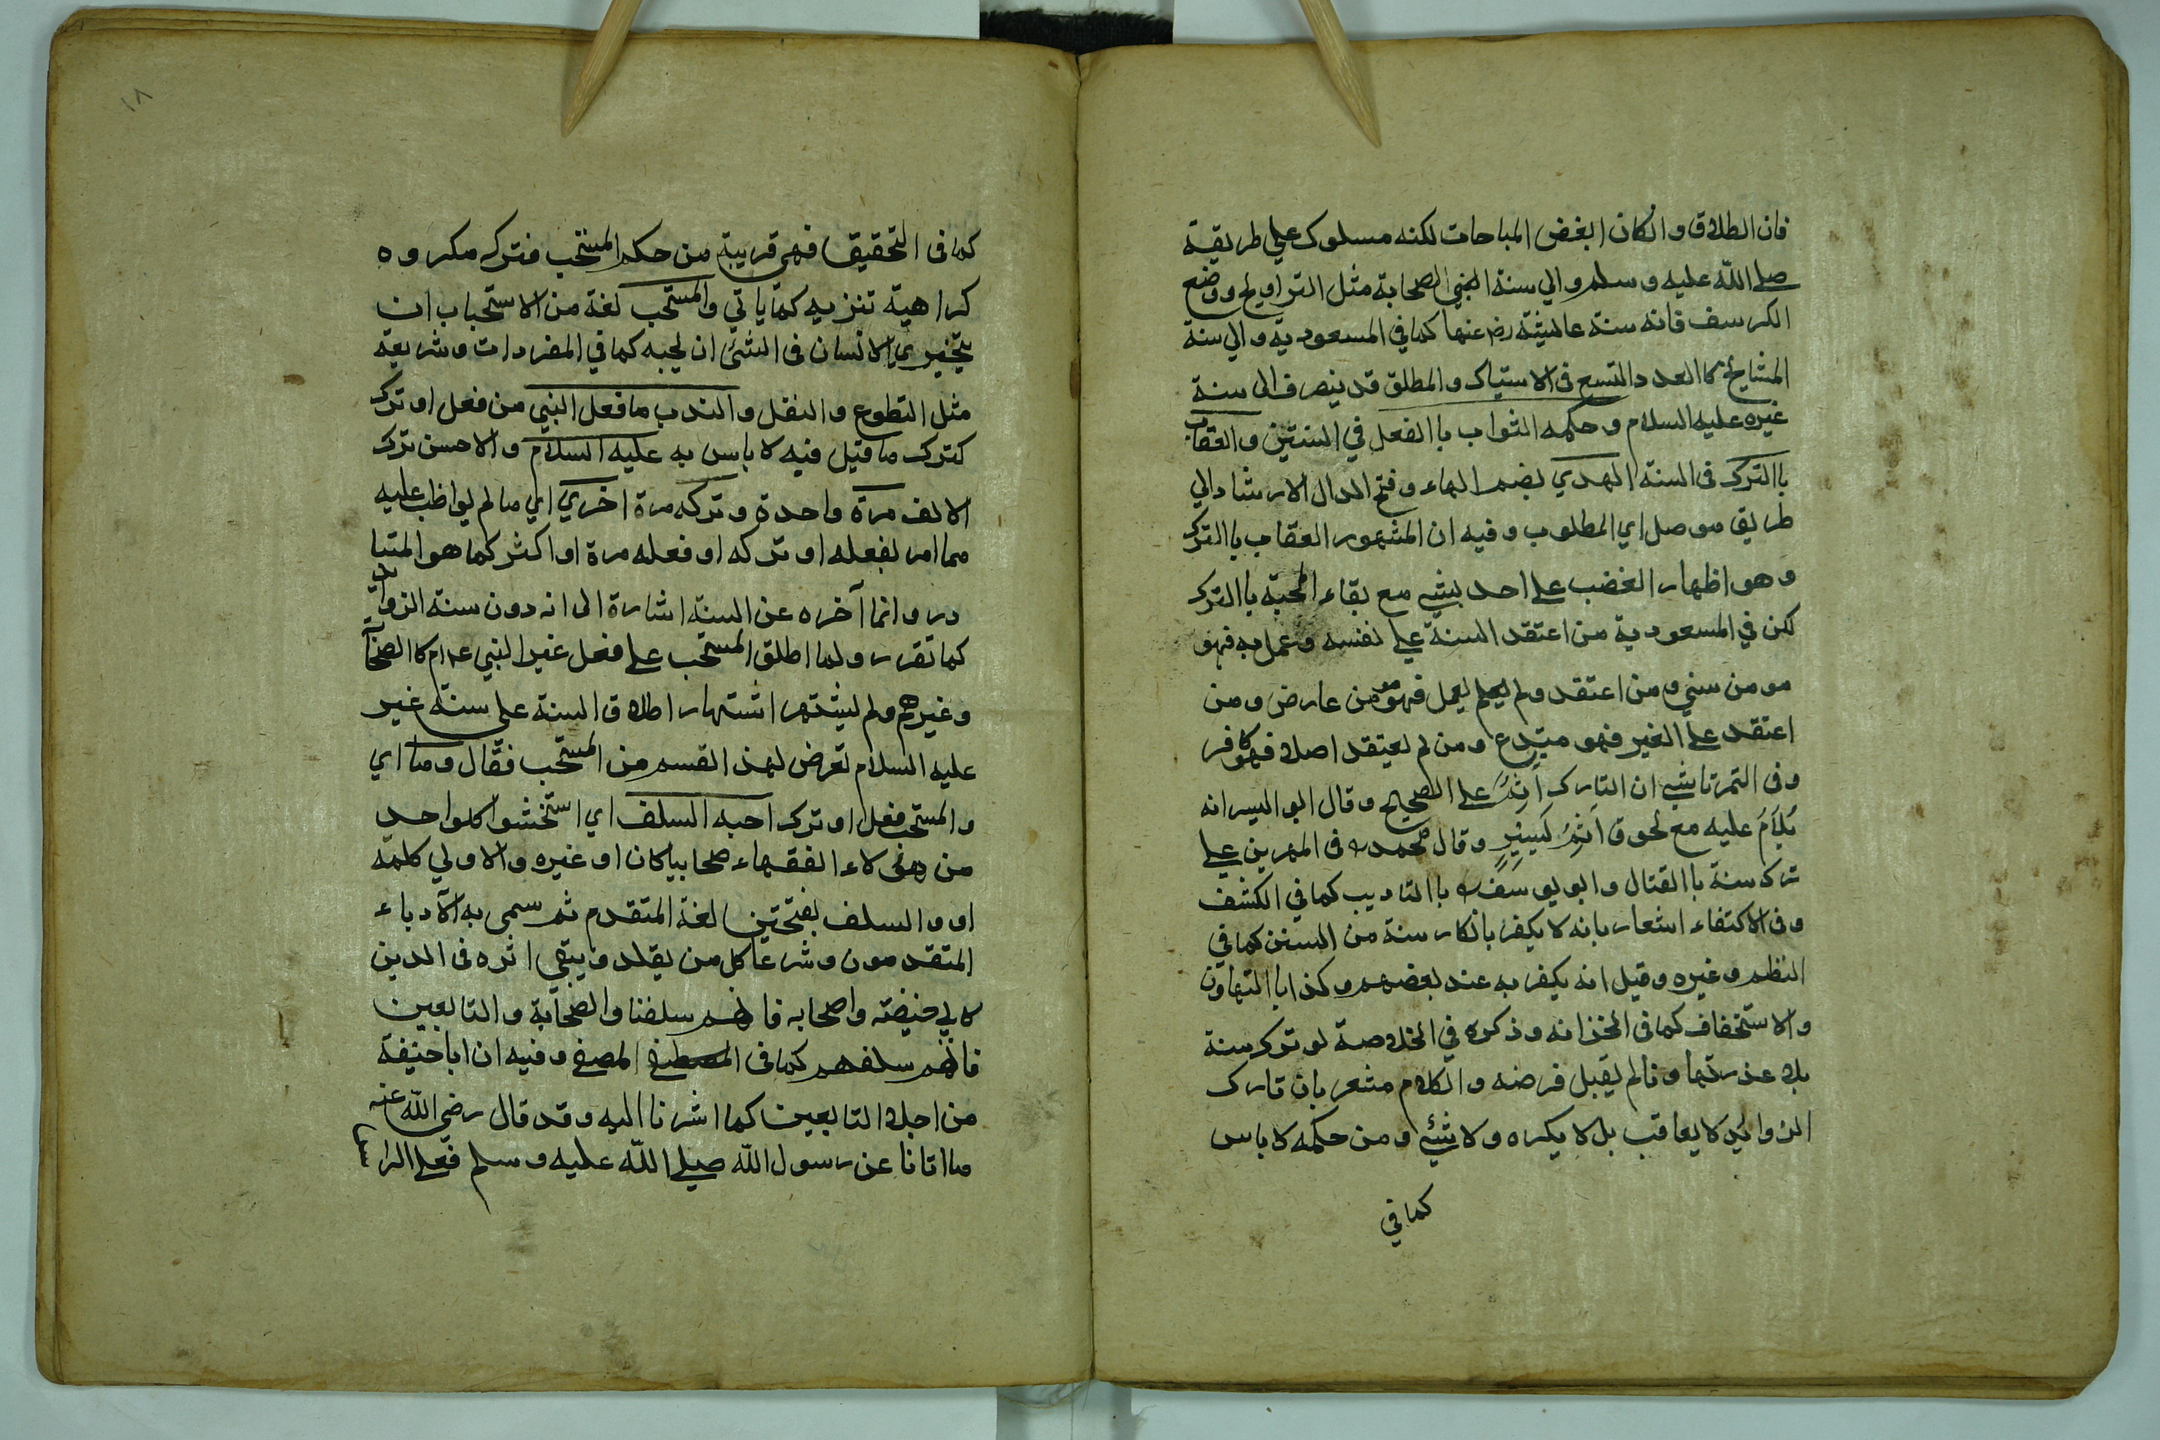 فان الطلاق وانكان ابغض المباحات لكنه مسلوك علي طريقية
صلے اللّه عليه وسلم والي سنة النبي الصحابة مثل التراويح ووضع
الكرسف فانه سنة عائيشة رضعنها كما في المسعودية والي سنة
المشايخ كا العدد التسع فى الاستياك والمطلق قد ينصرف الى سنة
غيره عليه السلام وحكمه الثواب با الفعل في السنتين والعقاب
با الترك فى السنة الهدي بضم الهاء وفتح الدال الارشاد الي
طريق موصل اي المطلوب وفيه ان المشهور العقاب با الترك
وهو اظهار الغضب علے احد بشيء مع بقاء المحبة با الترك
لكن في المسعودية من اعتقد السنة علي نفسه وعمل به فهو
مومن سني ومن اعتقد ولم يعلم يعمل فهو مومن عارض ومن
اعتقد علے الغير فهو مبتدع ومن لم يعتقد اصلا فهو كافر
وفى التمرتاشي ان التارك اثم علے الصحيح وقال ابو اليسر انه
يُلاَمَ عليه مع لحوق اثم كبير وقال محمد فى المهرين علي
ترك سنة با القتال وابو يوسف با التاديب كما في الكشف
وفى الاكتفاء اشعار بانه لا يكفر بانكار سنة من السنن كما في
النظم وغيره وقيل انه يكفر به عند بعضهم وكذا با التهاون
والاستخفاف كما فى الخزانه وذكره في الخلاصة لو ترك سنة
بلا عذر تهاونا لم يقبل فرضه والكلام مشعر بان تارك
الزوائد لا يعاقب بل لا يكره ولا شيء ومن حكمه لا باس
كما في
١٨
كما فى التحقيق فهى قريبة من حكم المستحب فتركه مكروه
كراهية تنزيه كما ياتي والمستحب لغة من الاستحباب ان
يتخيري الانسان فى الشئ ان يحبه كما في المفردات وشريعة
مثل التطوع والنفل والندب ما فعل النبي من فعل او ترك
كترك ما قيل فيه لا باس به عليه السلام والاحسن ترك
الالف مرة واحدة وتركه مرة اخري اي ما لم يواظب عليه
مما امر بفعله او تركه او فعله مرة او اكثر كما هو المتبا
در وانما آخره عن السنة اشارة الى انه دون سنة الزوائد
كما تقرر ولما اطلق المستحب علے فعل غير النبي عم كا الصحابة
وغيرهم ولم يشتهر اشتهار اطلاق السنة على سنة غير
عليه السلام تعرض لهذ القسم من المستحب فقال وما اي
والمستحب فعل او ترك احبه السلف اي استخشوا كلواحد
من هؤلاء الفقهاء صحابيا كان او غيره والاولي كلمة
او والسلف بفتحتين لغة المتقدم ثم سمى به الآدباء
المتقدمون وشرعا كل من يقلد ويبتغي اثره فى الدين
كا بي حنيفة واصحابه فانهم سلفنا والصحابة والتابعين
فانهم سلفهم كما فى المصطفے المصفے وفيه ان ابا حنيفة
من اجلا التابعين كما اشرنا اليه وقد قال رضي اللّه عنه
ما اتانا عن رسول اللّه صلي اللّه عليه وسلم فعلے الرا